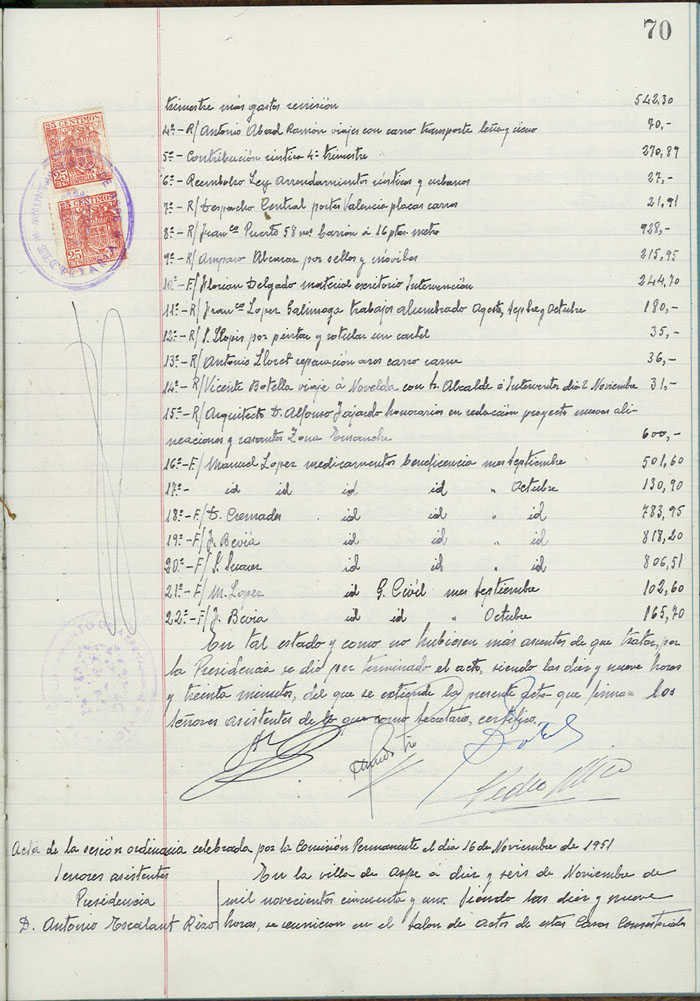 70
trimestre más gastos remisión 542,30
4º- R/ Antonio Abad Ramón viajes con carro transporte leña y cieno 70,-
5º- Contribución rústica 4º trimestre 270,89
6º- Reembolso Ley Arrendamientos rústicos y urbanos 27,-
7º- R/ Despacho Central porte Valencia placas carros 21,91
8º- R/ Franco Puerto 58 ms carrión á 16 ptas metro 928,-
9º- R/ Amparo Alcaraz por sellos y móviles 215,95
10º- F/ Florian Delgado material escritorio Intervención 244,70
11º- R/ Franco Lopez Galinsoga trabajos alumbrado Agosto, sepbre y Octubre 180,-
12º- R/ S. Llopis por pintar y rotular un cartel 35,-
13º- R/ Antonio Lloret reparación aros carro carne 36,-
14º- R/ Vicente Botella viaje á Novelda con Sr. Alcalde é Interventor dia 2 Noviembre 31,-
15º- R/ Arquitecto D. Alfonso Fajardo honorarios en redacción proyecto nuevas ali-
neaciones y rasantes Zona Ensanche 600,-
16º- F/ Manuel Lopez medicamentos beneficencia mes septiembre 501,60
17º- id id id id " Octubre 130,90
18º- F/ D. Cremades id id " id 783,95
19º- F/ J. Bevia id id " id 818,20
20º- F/ S. Suarez id id " id 806,51
21º- F/ M. Lopez id G. Civil mes septiembre 102,60
22º- F/ J. Bevia id id " Octubre 165,70
En tal estado y como no hubiesen más asuntos de que tratar, por
la Presidencia se dió por terminado el acto, siendo las diez y nueve horas
y treinta minutos, del que se extiende la presente acta que firman los
señores asistentes de lo que como Secretario, certifico.
Pedro
Acta de la sesión ordinaria celebrada por la Comisión Permanente el dia 16 de Noviembre de 1951
Señores asistentes
Presidencia
D. Antonio Escalant Rizo
En la villa de Aspe á diez y seis de Noviembre de
mil novecientos cincuenta y uno. Siendo las diez y nueve
horas, se reunieron en el salon de actos de estas Casas Consistoriales
25 CENTIMOS
ESPECIAL MOVIL
25 CENTIMOS
25